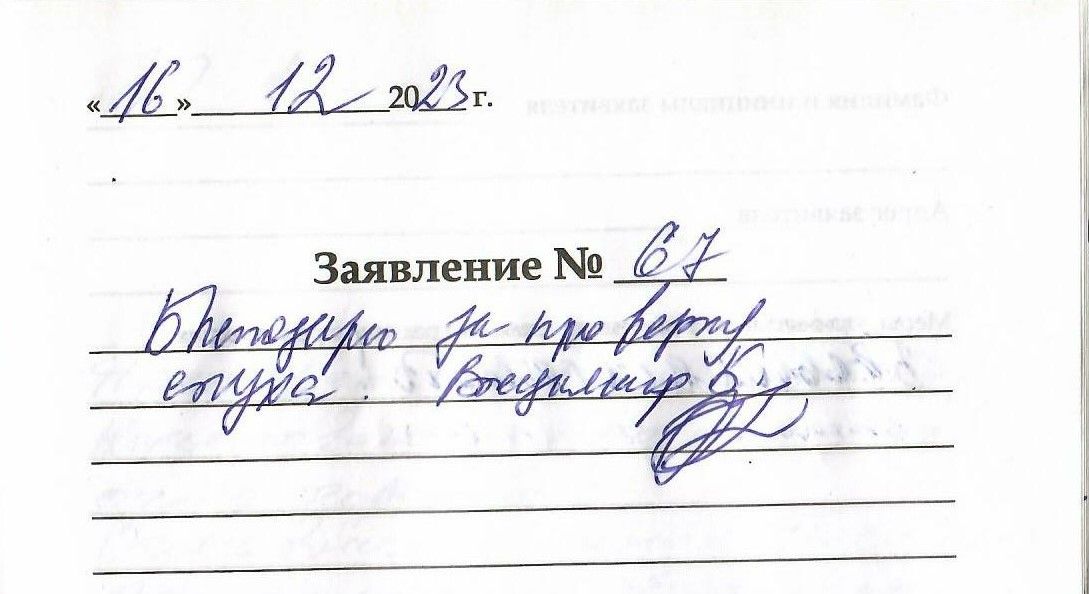 «16» 12 2023 г.
Заявление № 67
Благодарю за проверку
слуха. Владимир К.